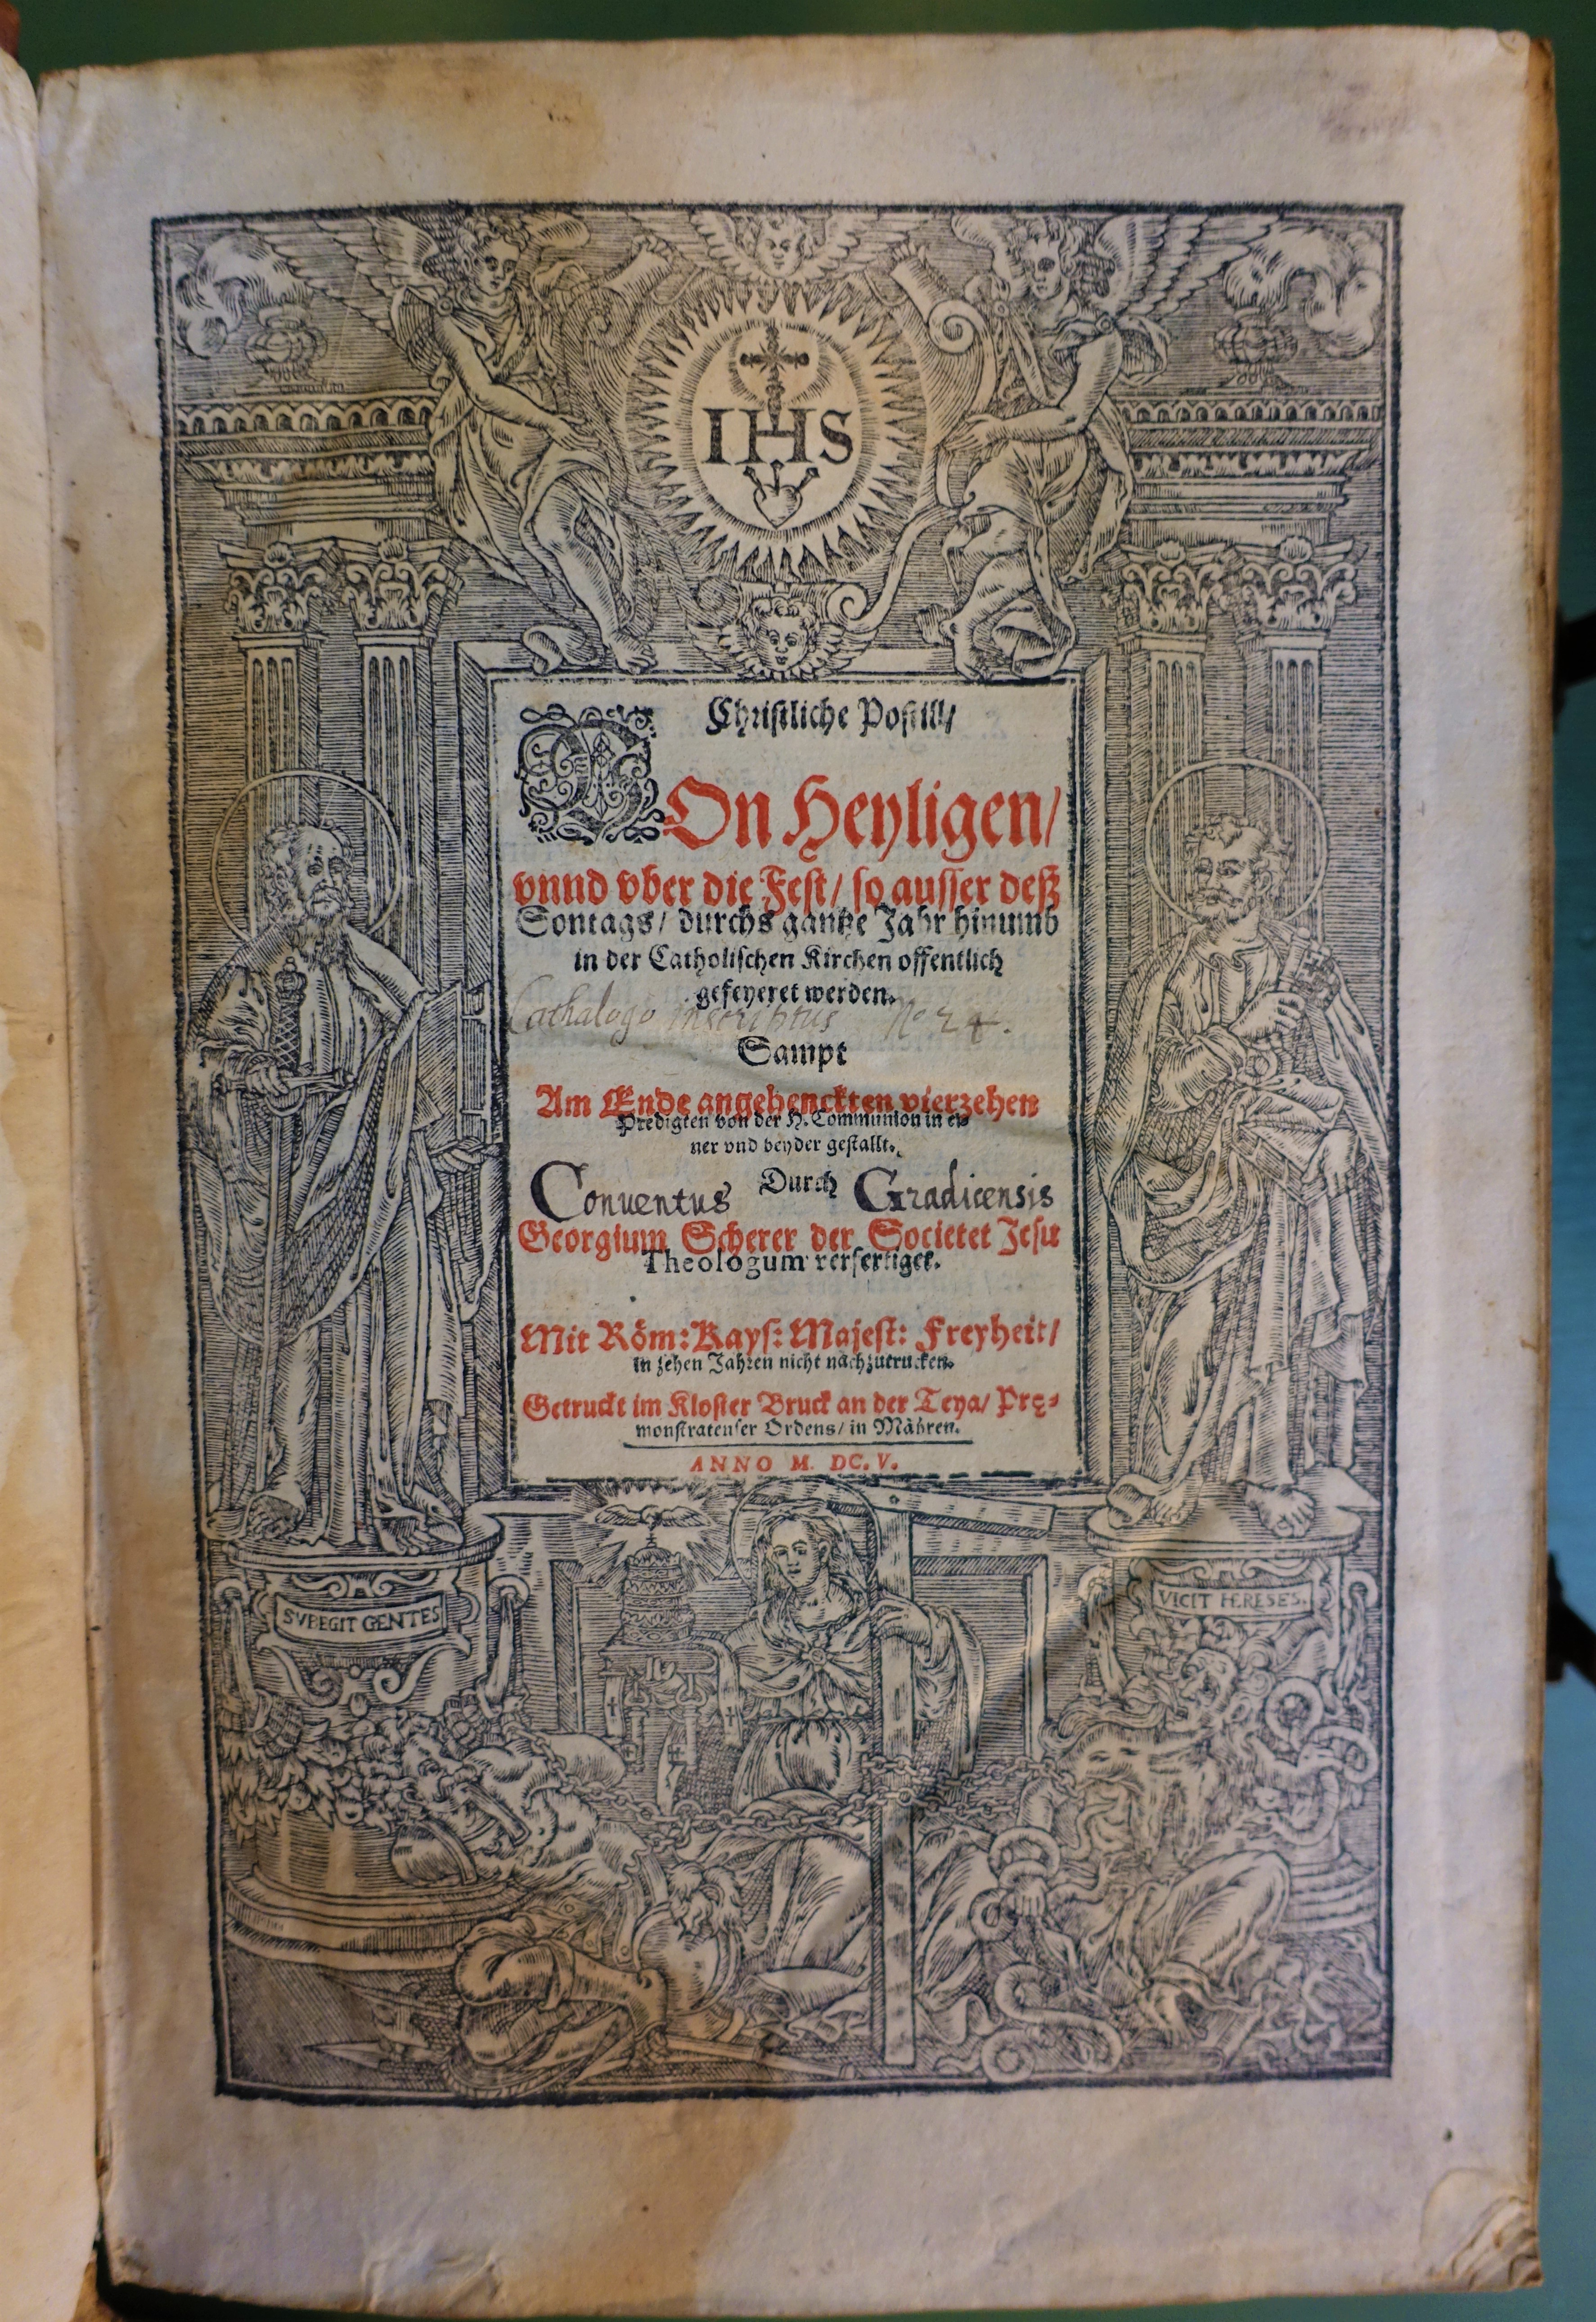 IHS
Christliche Postill/
VOn Heyligen/
vnnd vber die Fest/ so ausser deß
Sontags/ durchs gantze Jahr hinumb
in der Catholischen Kirchen offentlich
gefeyeret werden.
Cathalogo inscriptus No 24.
Sampt
Am Ende angehenckten vierzehen
Predigten von der H. Communion in ei-
ner vnd beyder gestallt.
Conventus Durch Gradicensis
Georgium Scherer der Societet Jesu
Theologum verfertiget.
Mit Röm: Kays: Majest: Freyheit/
in zehen Jahren nicht nachzutrucken.
Getruckt im Kloster Bruck an der Teya/ Prę-
monstratenser Ordens/ in Mähren.
ANNO M. DC. V.
SVBEGIT GENTES
VICIT HÆRESES.